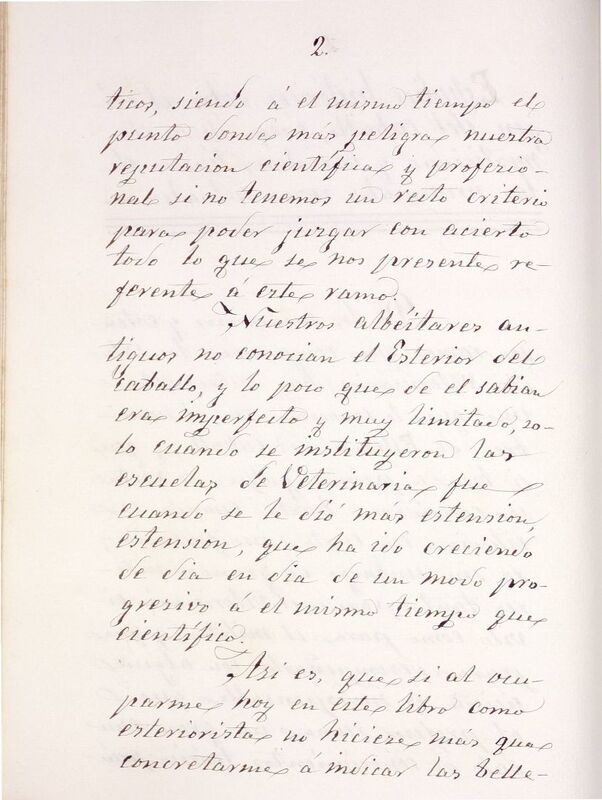 2.
ticos, siendo á el mismo tiempo el
punto donde más peligra nuestra
reputacion científica y profesio-
nal si no tenemos un recto criterio
para poder juzgar con acierto
todo lo que se nos presente re-
ferente á este ramo.
Nuestros albéitares an-
tiguos no conocian el Esterior del
Caballo, y lo poco que de el sabian
era imperfecto y muy limitado, so-
lo cuando se instituyeron las
escuelas de Veterinaria fue
cuando se le dió más estension,
estension, que ha ido creciendo
de dia en dia de un modo pro-
gresivo á el mismo tiempo que
científico.
Asi es, que si al ocu-
parme hoy en este libro como
esteriorista no hiciese más que
concretarme á indicar las belle-